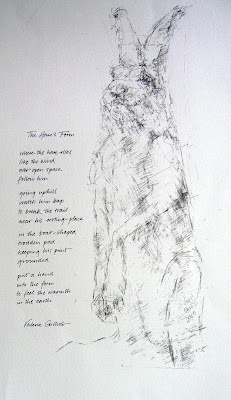 The Hare's Form
where the hare rides
like the wind
over open space
follow him
going uphill
watch him leap
to break the trail
near his resting-place
in the boat-shaped
trodden pad
keeping his print
grounded
put a hand
into the form
to feel the warmth
in the earth
Valerie Gillies